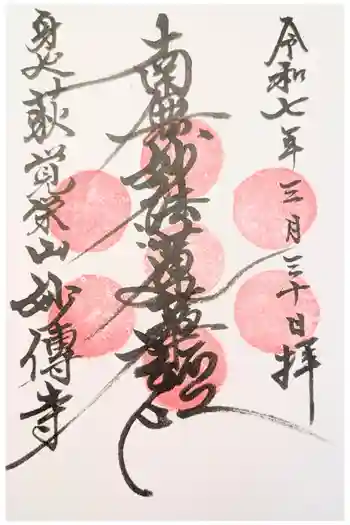 令和七年三月三十日拝
南無妙法蓮華経
身延萩覚栄山妙傳寺